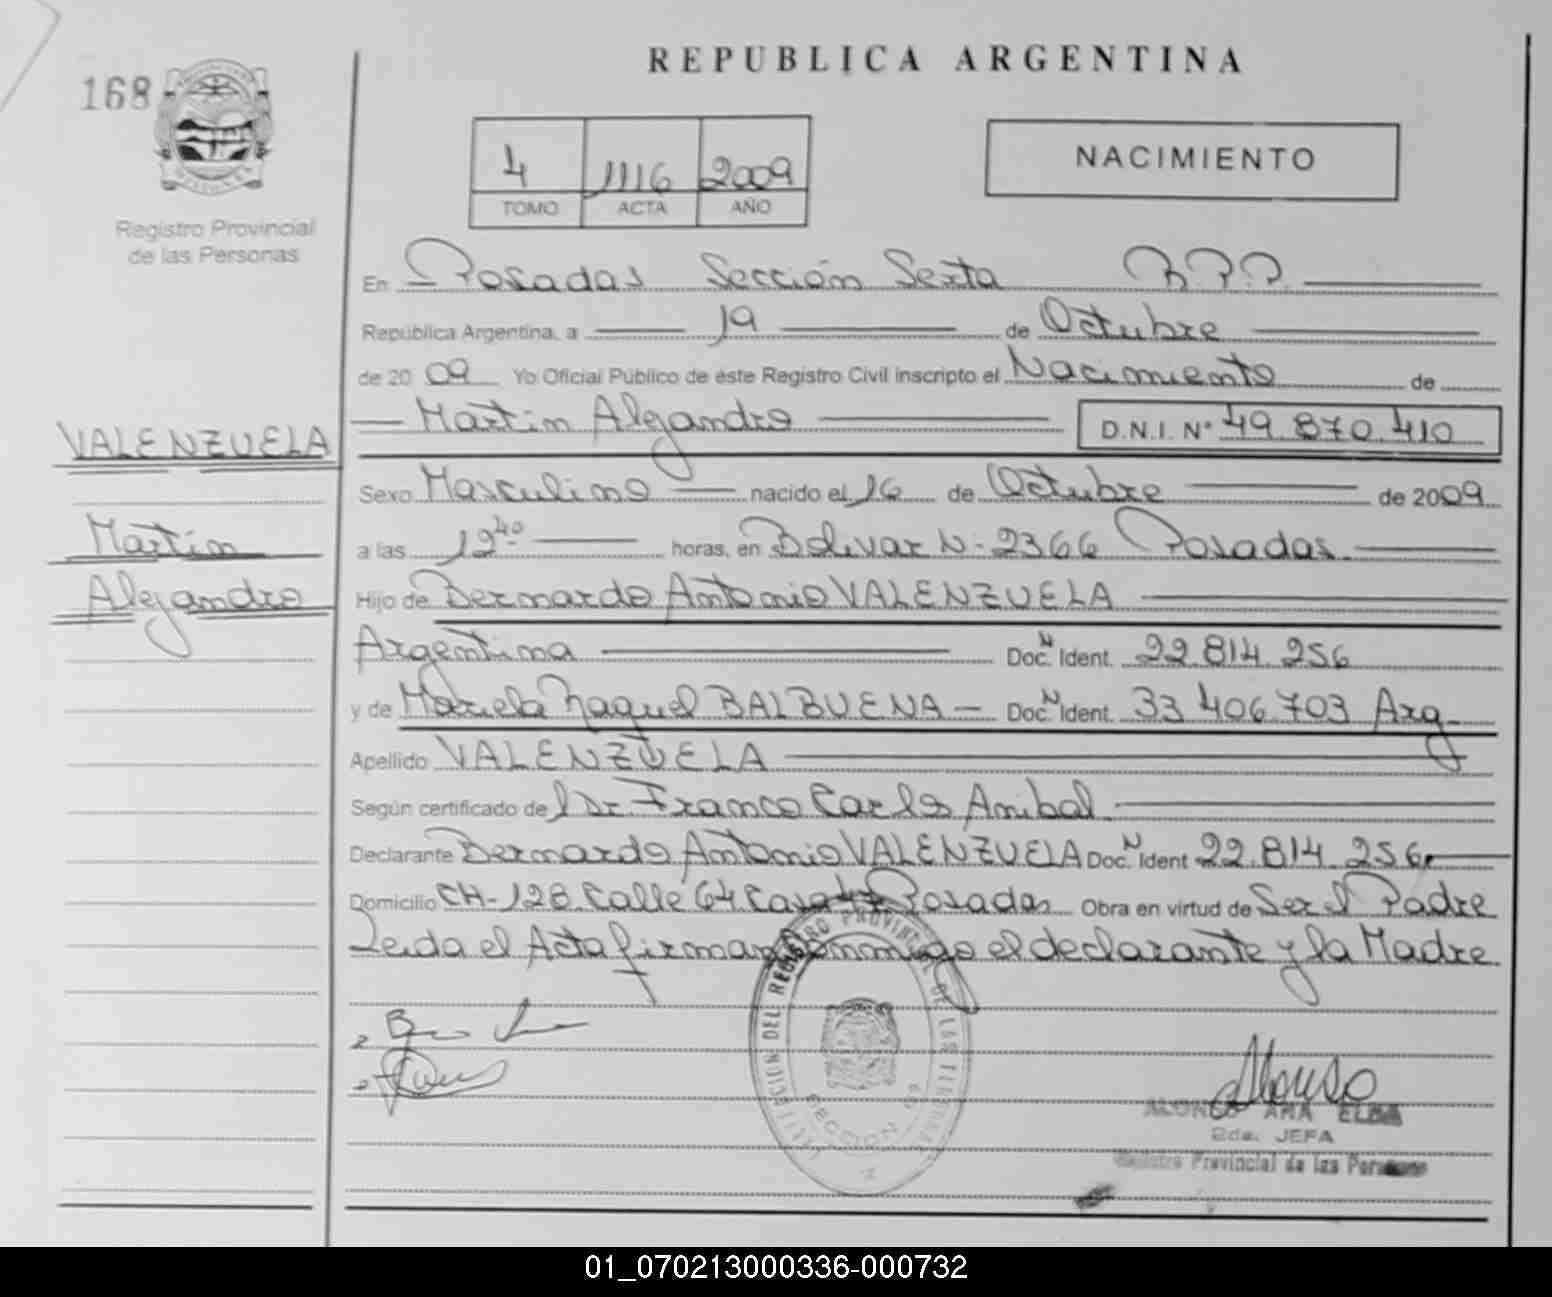 REPUBLICA ARGENTINA
168
MISIONES
Registro Provincial
de las Personas
4 1116 2009
TOMO ACTA AÑO
NACIMIENTO
En Posadas Sección Sexta R.P.P.
República Argentina, a 19 de Octubre
de 2009 Yo Oficial Público de éste Registro Civil inscripto el Nacimiento de
Martin Alejandro D.N.I. Nº 49.870.410
VALENZUELA
Martin
Alejandro
Sexo Masculino nacido el 16 de Octubre de 2009
a las 12 40 horas, en Bolivar N- 2366 Posadas
Hijo de Bernardo Antonio VALENZUELA
Argentina Doc. N Ident. 22.814.256
y de Mariela Raquel BALBUENA - Doc. N Ident. 33.406.703 Arg
Apellido VALENZUELA
Según certificado de l Dr. Franco Carlos Anibal
Declarante Bernardo Antonio VALENZUELA Doc. N Ident 22.814.256
Domicilio CH-128 Calle 64 Casa Posadas Obra en virtud de Ser el Padre
Leida el Acta firman conmigo el declarante y la Madre
REGISTRO PROVINCIAL DE LAS PERSONAS
SECCION
Alonso
ALONSO ANA ELBA
2da. JEFA
Registro Provincial de las Personas
01_070213000336-000732